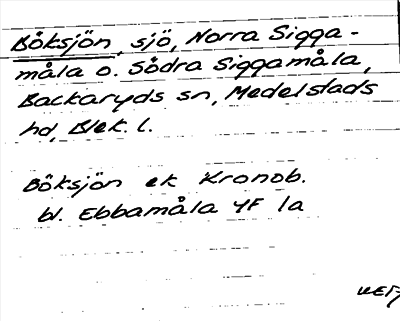 Böksjön, sjö, Norra Sigga-
måla o. Södra Siggamåla,
Backaryds sn, Medelstads
hd, Blek. l.
Böksjön ek Kronob.
bl. Ebbamåla 4F 1a